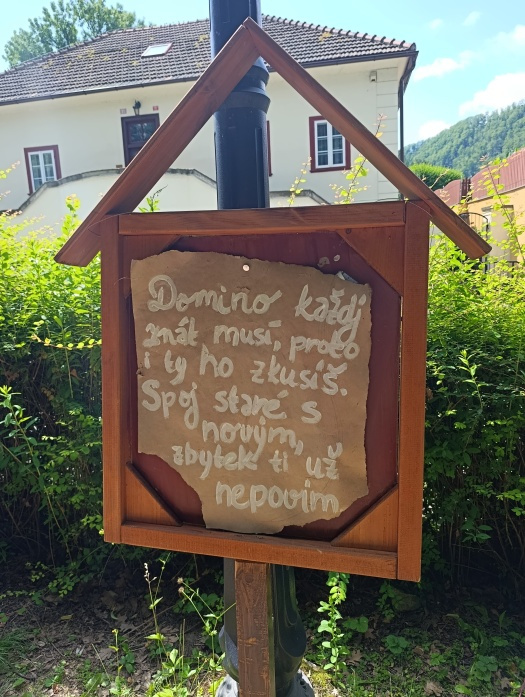 Domino každj
znát musí, proto
i ty ho zkusíš.
Spoj staré s
novým,
zbytek ti už
nepovim